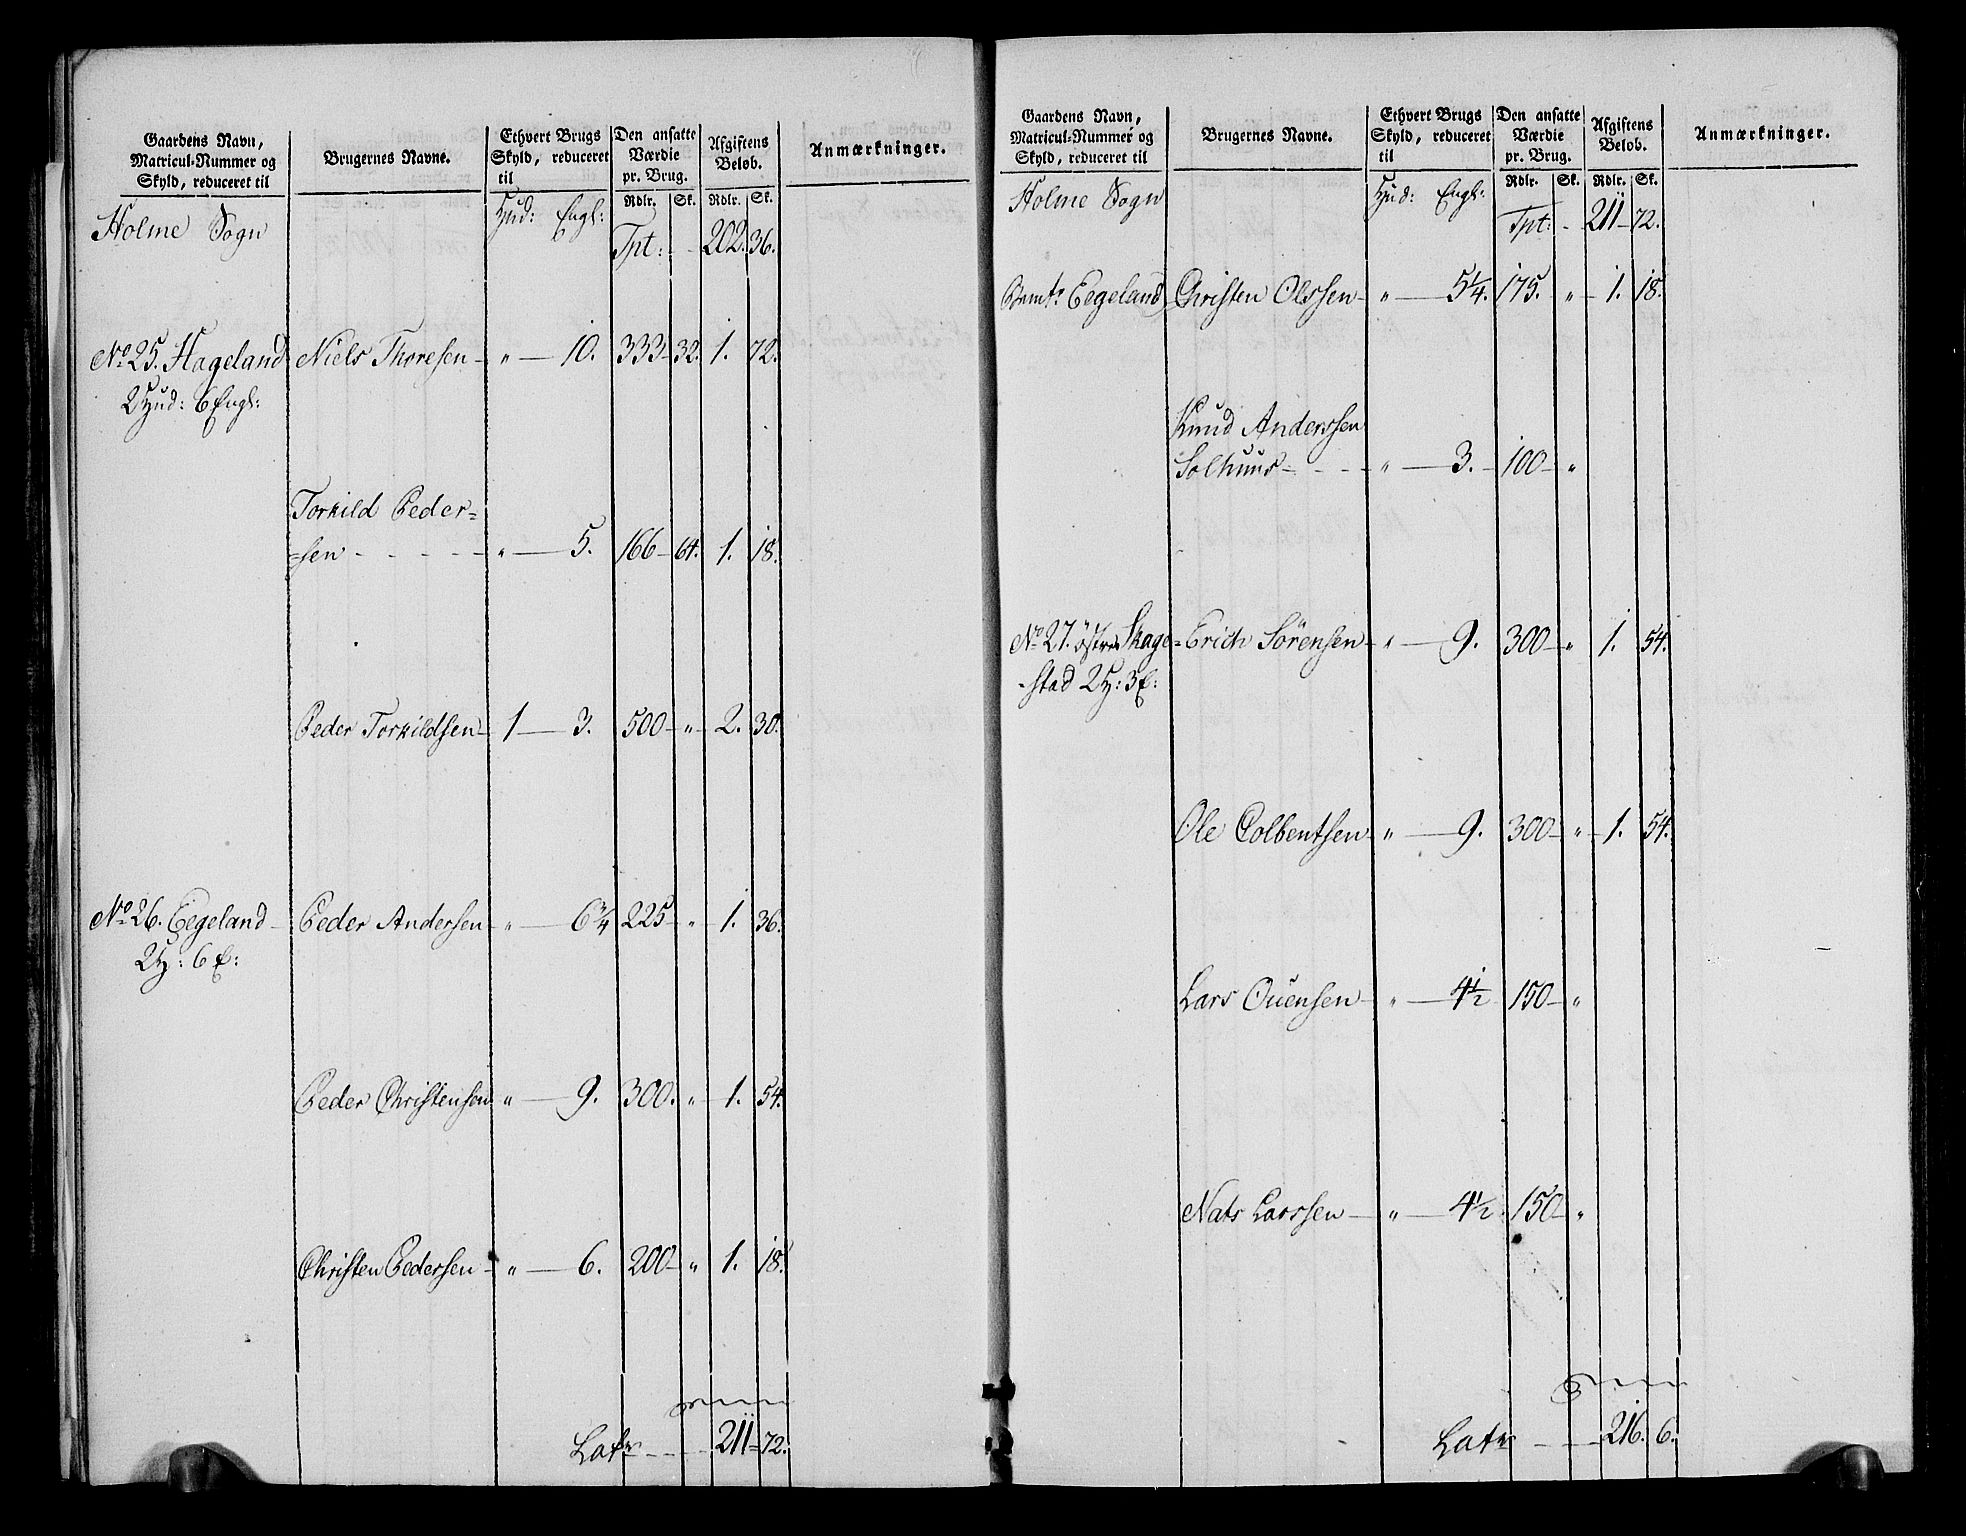 Gaardens Navn, Matricul-Nummer og Skyld, reduceret til | Brugernes Navne. | Ethvert Brugs Skyld, reduceret til | Den ansatte Værdie pr. Brug. | Afgiftens Beløb. | Anmærkninger.
Rdlr. Sk. Rdlr. Sk.
Holme Sogn Hud: Engl: Tpt: - - 202. 36.
No 25. Hageland Niels Thoresen - " — 10. 333 - 32. 1. 72.
2 Hud: 6 Engl:
Torkild Peder=
=sen - - - - - " — 5. 166 - 64. 1. 18.
Peder Torkildsen - 1 — 3. 500 - " - 2. 30.
No 26. Eegeland - Peder Andersen - " — 6 3/4 225 - " - 1. 36.
2 H: 6 E:
Peder Christensen " — 9. 300. " - 1. 54.
Christen Pedersen - " — 6. 200 - " 1. 18.
Latr - - - - 211 = 72.
Gaardens Navn, Matricul-Nummer og Skyld, reduceret til | Brugernes Navne. | Ethvert Brugs Skyld, reduceret til | Den ansatte Værdie pr. Brug. | Afgiftens Beløb. | Anmærkninger.
Rdlr. Sk. Rdlr. Sk.
Holme Sogn Hud: Engl: Tpt: - - 211 - 72.
Eegeland Christen Olssen - " — 5 1/4. 175. " - 1. 18.
Knud Anderssen
Solhuus - - - - " — 3. - 100 - "
No 27. østre Skage= Erich Sörensen - " — 9. 300 - " 1. 54.
-stad 2 H: 3 E:
Ole Colbentsen - " — 9. 300 - " - 1. 54.
Lars Ouensen - " — 4 1/2 150 - "
Nats Larssen - " — 4 1/2 150 - "
Latr - - - 216. 6.